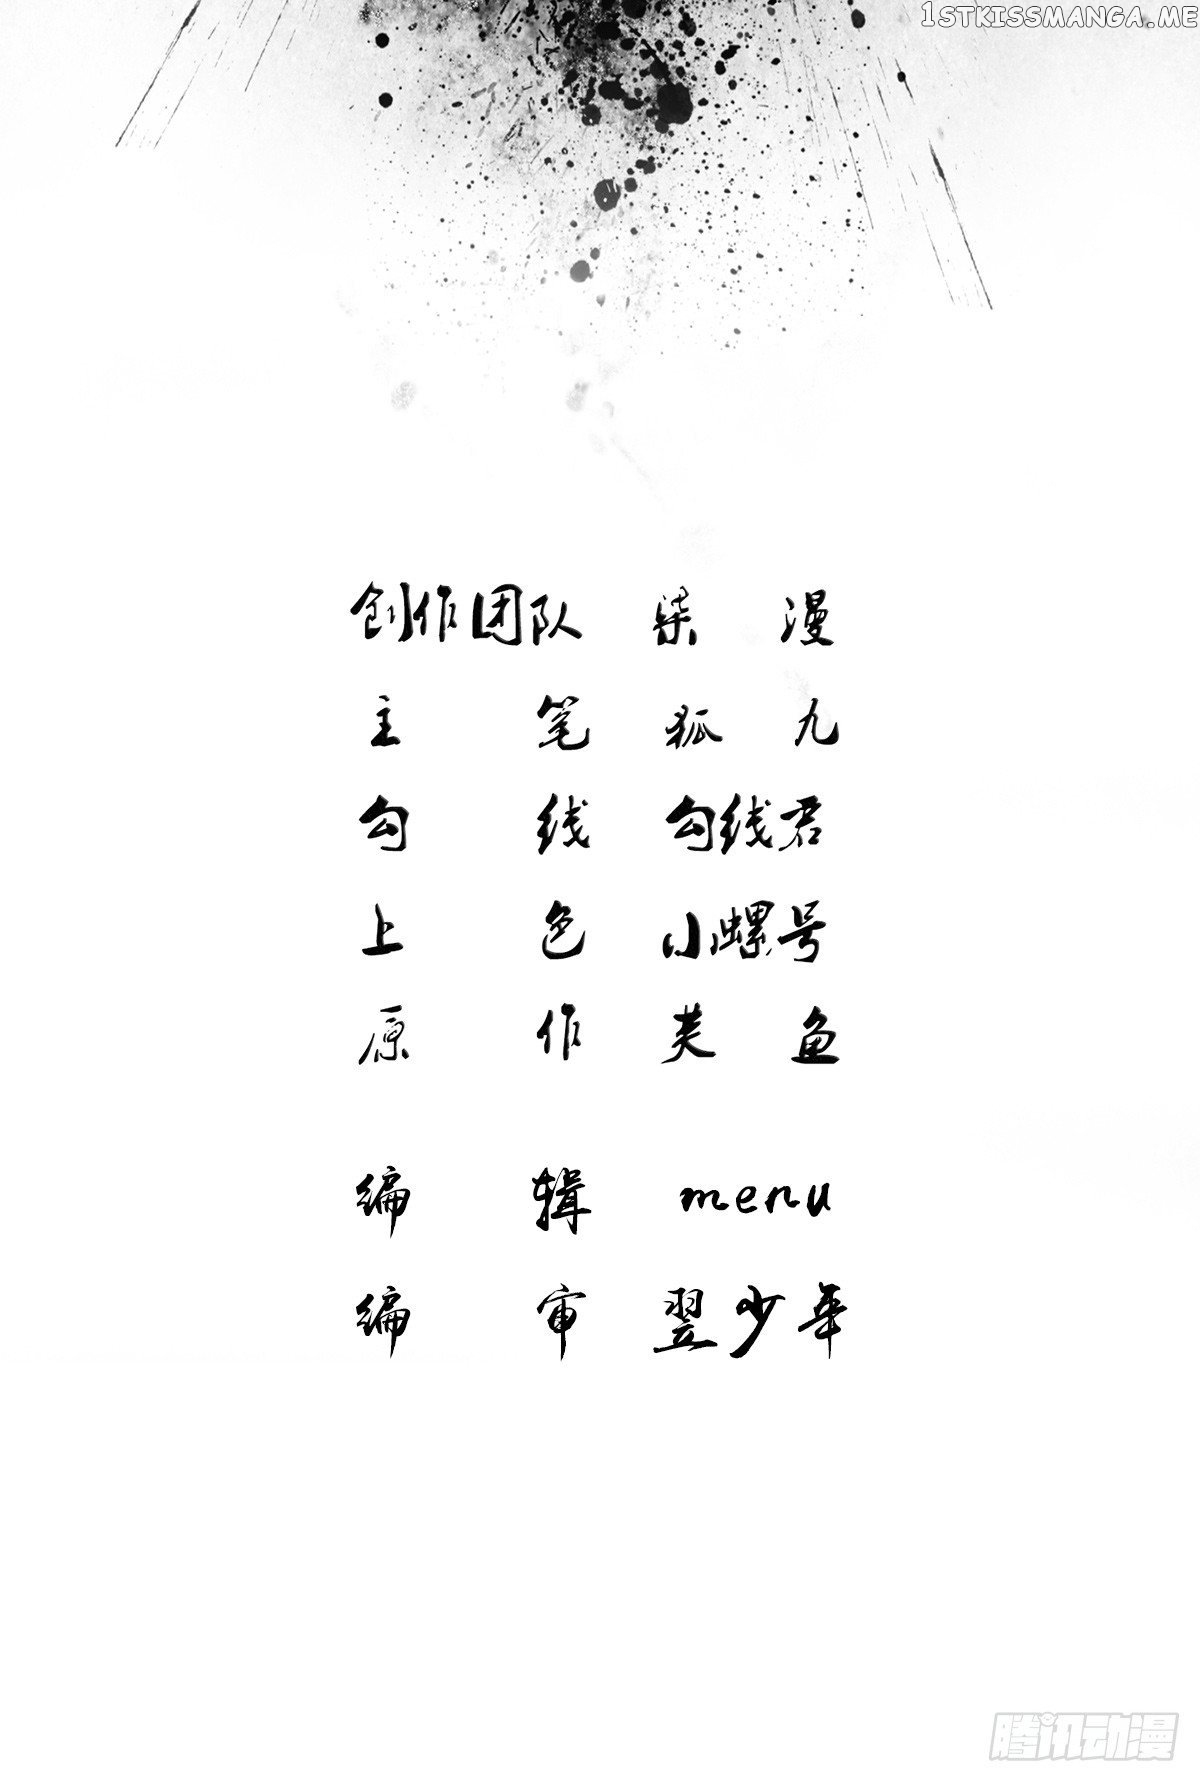 1STKISSMANGA.ME
创作团队 柒 漫
主 笔 狐 九
勾 线 勾线君
上 色 小螺号
原 作 芙 鱼
编 辑 menu
编 审 翌少年
腾讯动漫